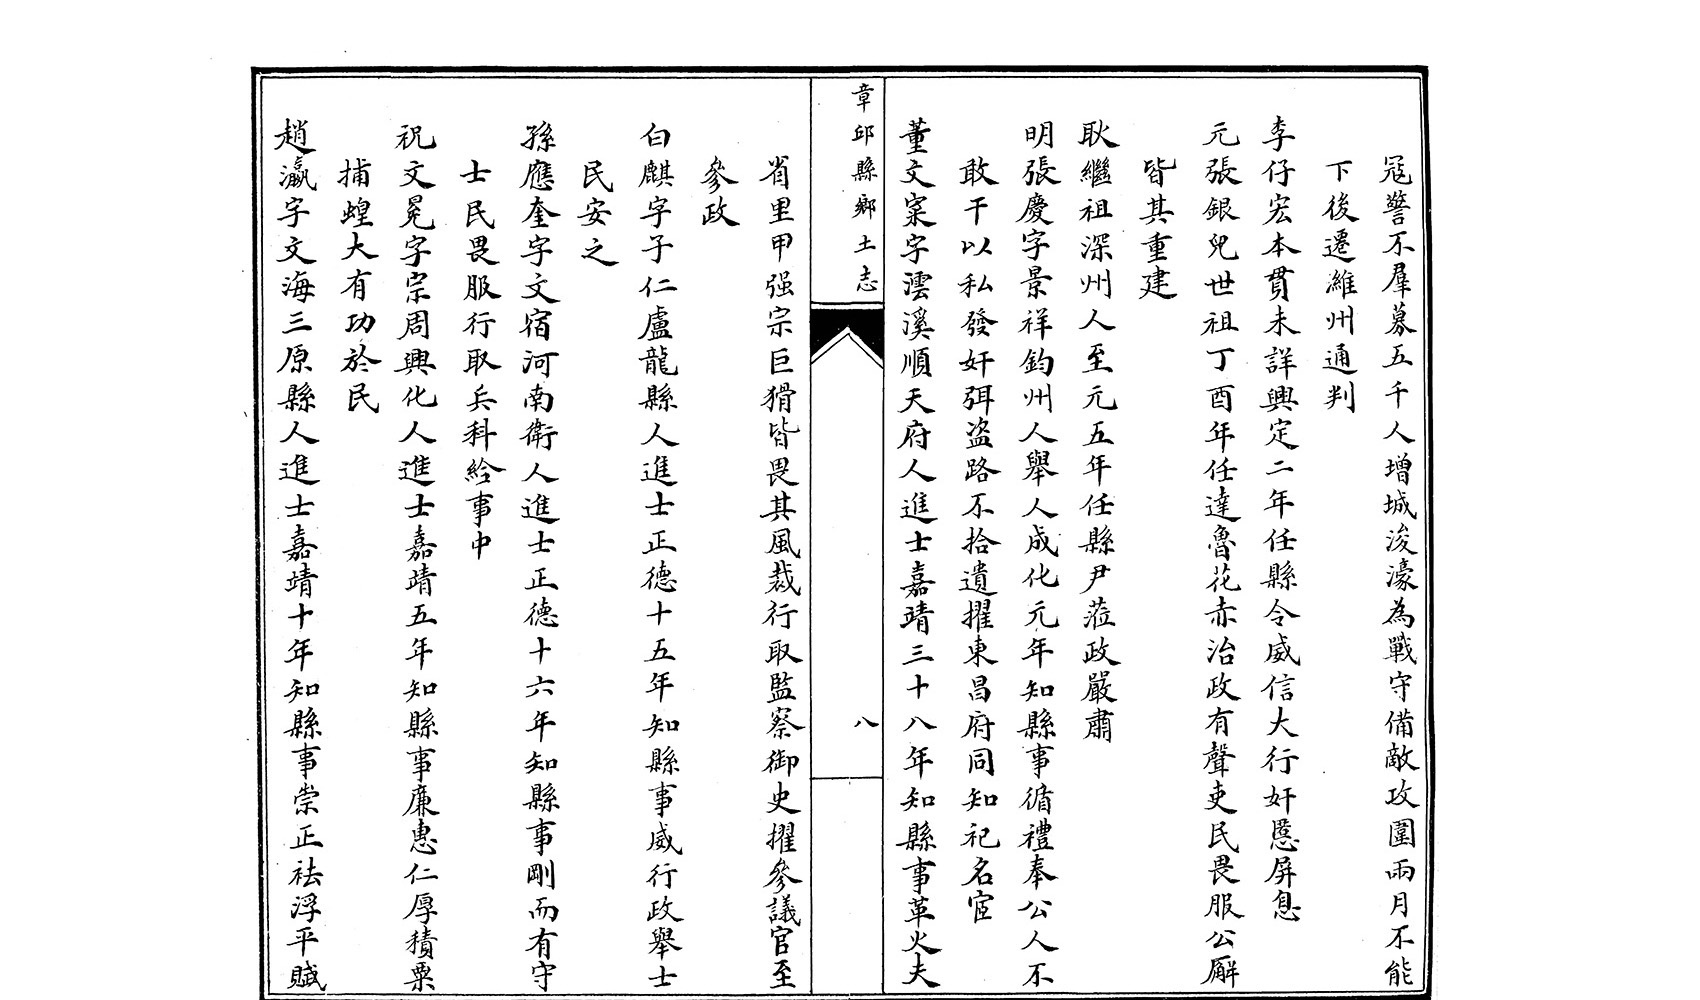 寇警不羣募五千人增城浚濠為戰守備敵攻圍兩月不能
下後遷濰州通判
李仔宏本貫未詳興定二年任縣令威信大行奸慝屏息
元張銀兒世祖丁酉年任達魯花赤治政有聲吏民畏服公廨
皆其重建
耿繼祖深州人至元五年任縣尹蒞政嚴肅
明張慶字景祥鈞州人舉人成化元年知縣事循禮奉公人不
敢干以私發奸弭盜路不拾遺擢東昌府同知祀名宦
董文寀字澐溪順天府人進士嘉靖三十八年知縣事革火夫
章邱縣鄉土志
八
省里甲强宗巨猾皆畏其風裁行取監察御史擢參議官至
參政
白麒字子仁盧龍縣人進士正德十五年知縣事威行政舉士
民安之
孫應奎字文宿河南衛人進士正德十六年知縣事剛而有守
士民畏服行取兵科給事中
祝文冕字宗周興化人進士嘉靖五年知縣事廉惠仁厚積粟
捕蝗大有功於民
趙瀛字文海三原縣人進士嘉靖十年知縣事崇正祛浮平賦